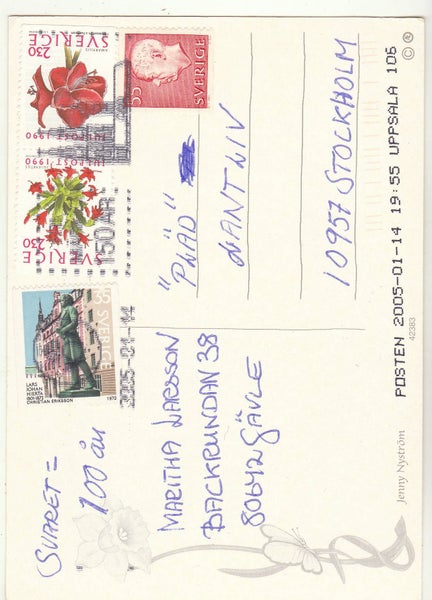 SVARET =
100 år
MARITHA LARSSON
BACKRUNDAN 38
80642 GÄVLE
"PLÄD"
LANTLIV
10957 STOCKHOLM
SVERIGE
2.30
JULPOST 1990
SVERIGE
2.30
JULPOST 1990
SVERIGE
55
SVERIGE
55
LARS
JOHAN
HIERTA
1801-1872
CHRISTIAN ERIKSSON
1973
150 ÅR
2005-01-14
POSTEN 2005-01-14 19:55 UPPSALA 106
42383
Jenny Nyström
©